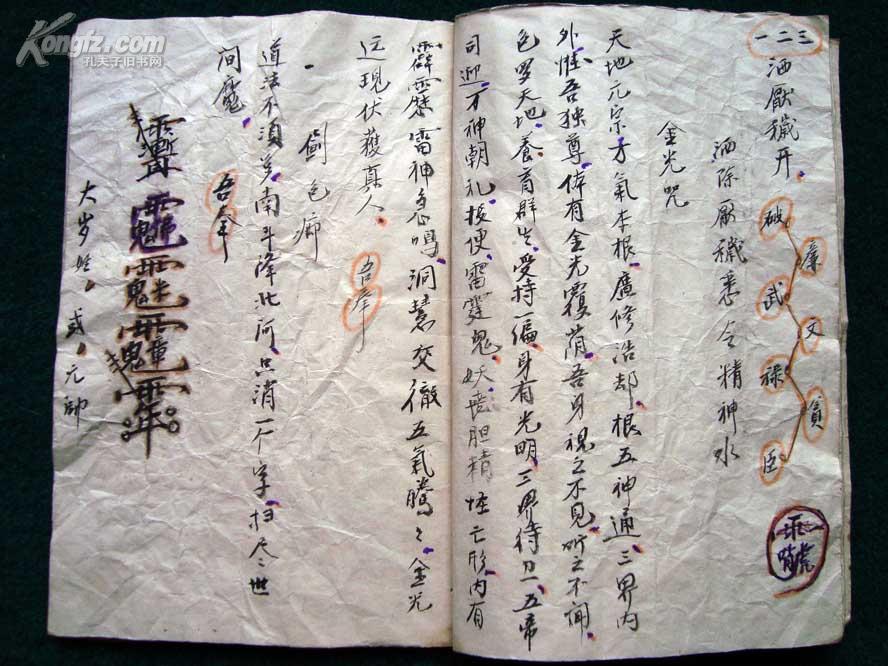 一二三
洒厭穢开
破 廉 武 文 禄 貪 臣
洒除厭穢悉令精神水
金光咒
天地元宗万氣本根廣修浩却根五神通三界內
外惟吾独尊体有金光覆荫吾身視之不見听之不闻
色罗天地养育群生受持一徧身有光明三界待卫五帝
司迎万神朝礼役使雷霆鬼妖丧胆精怪亡形内有
霹靂雷神急鳴洞慧交徹五氣騰々金光
迅現伏獲真人 吾奉
劍色
道法不須多南斗降北河只消一个字扫尽世
间魔 吾奉
大岁姓 或 元帥
Kongfz.com
孔夫子旧书网